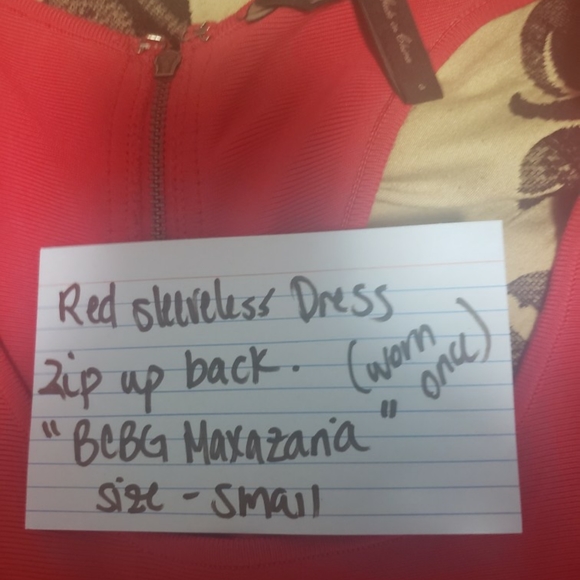 Red sleeveless Dress
Zip up back. (worn once)
"BCBG Maxazaria"
size - small